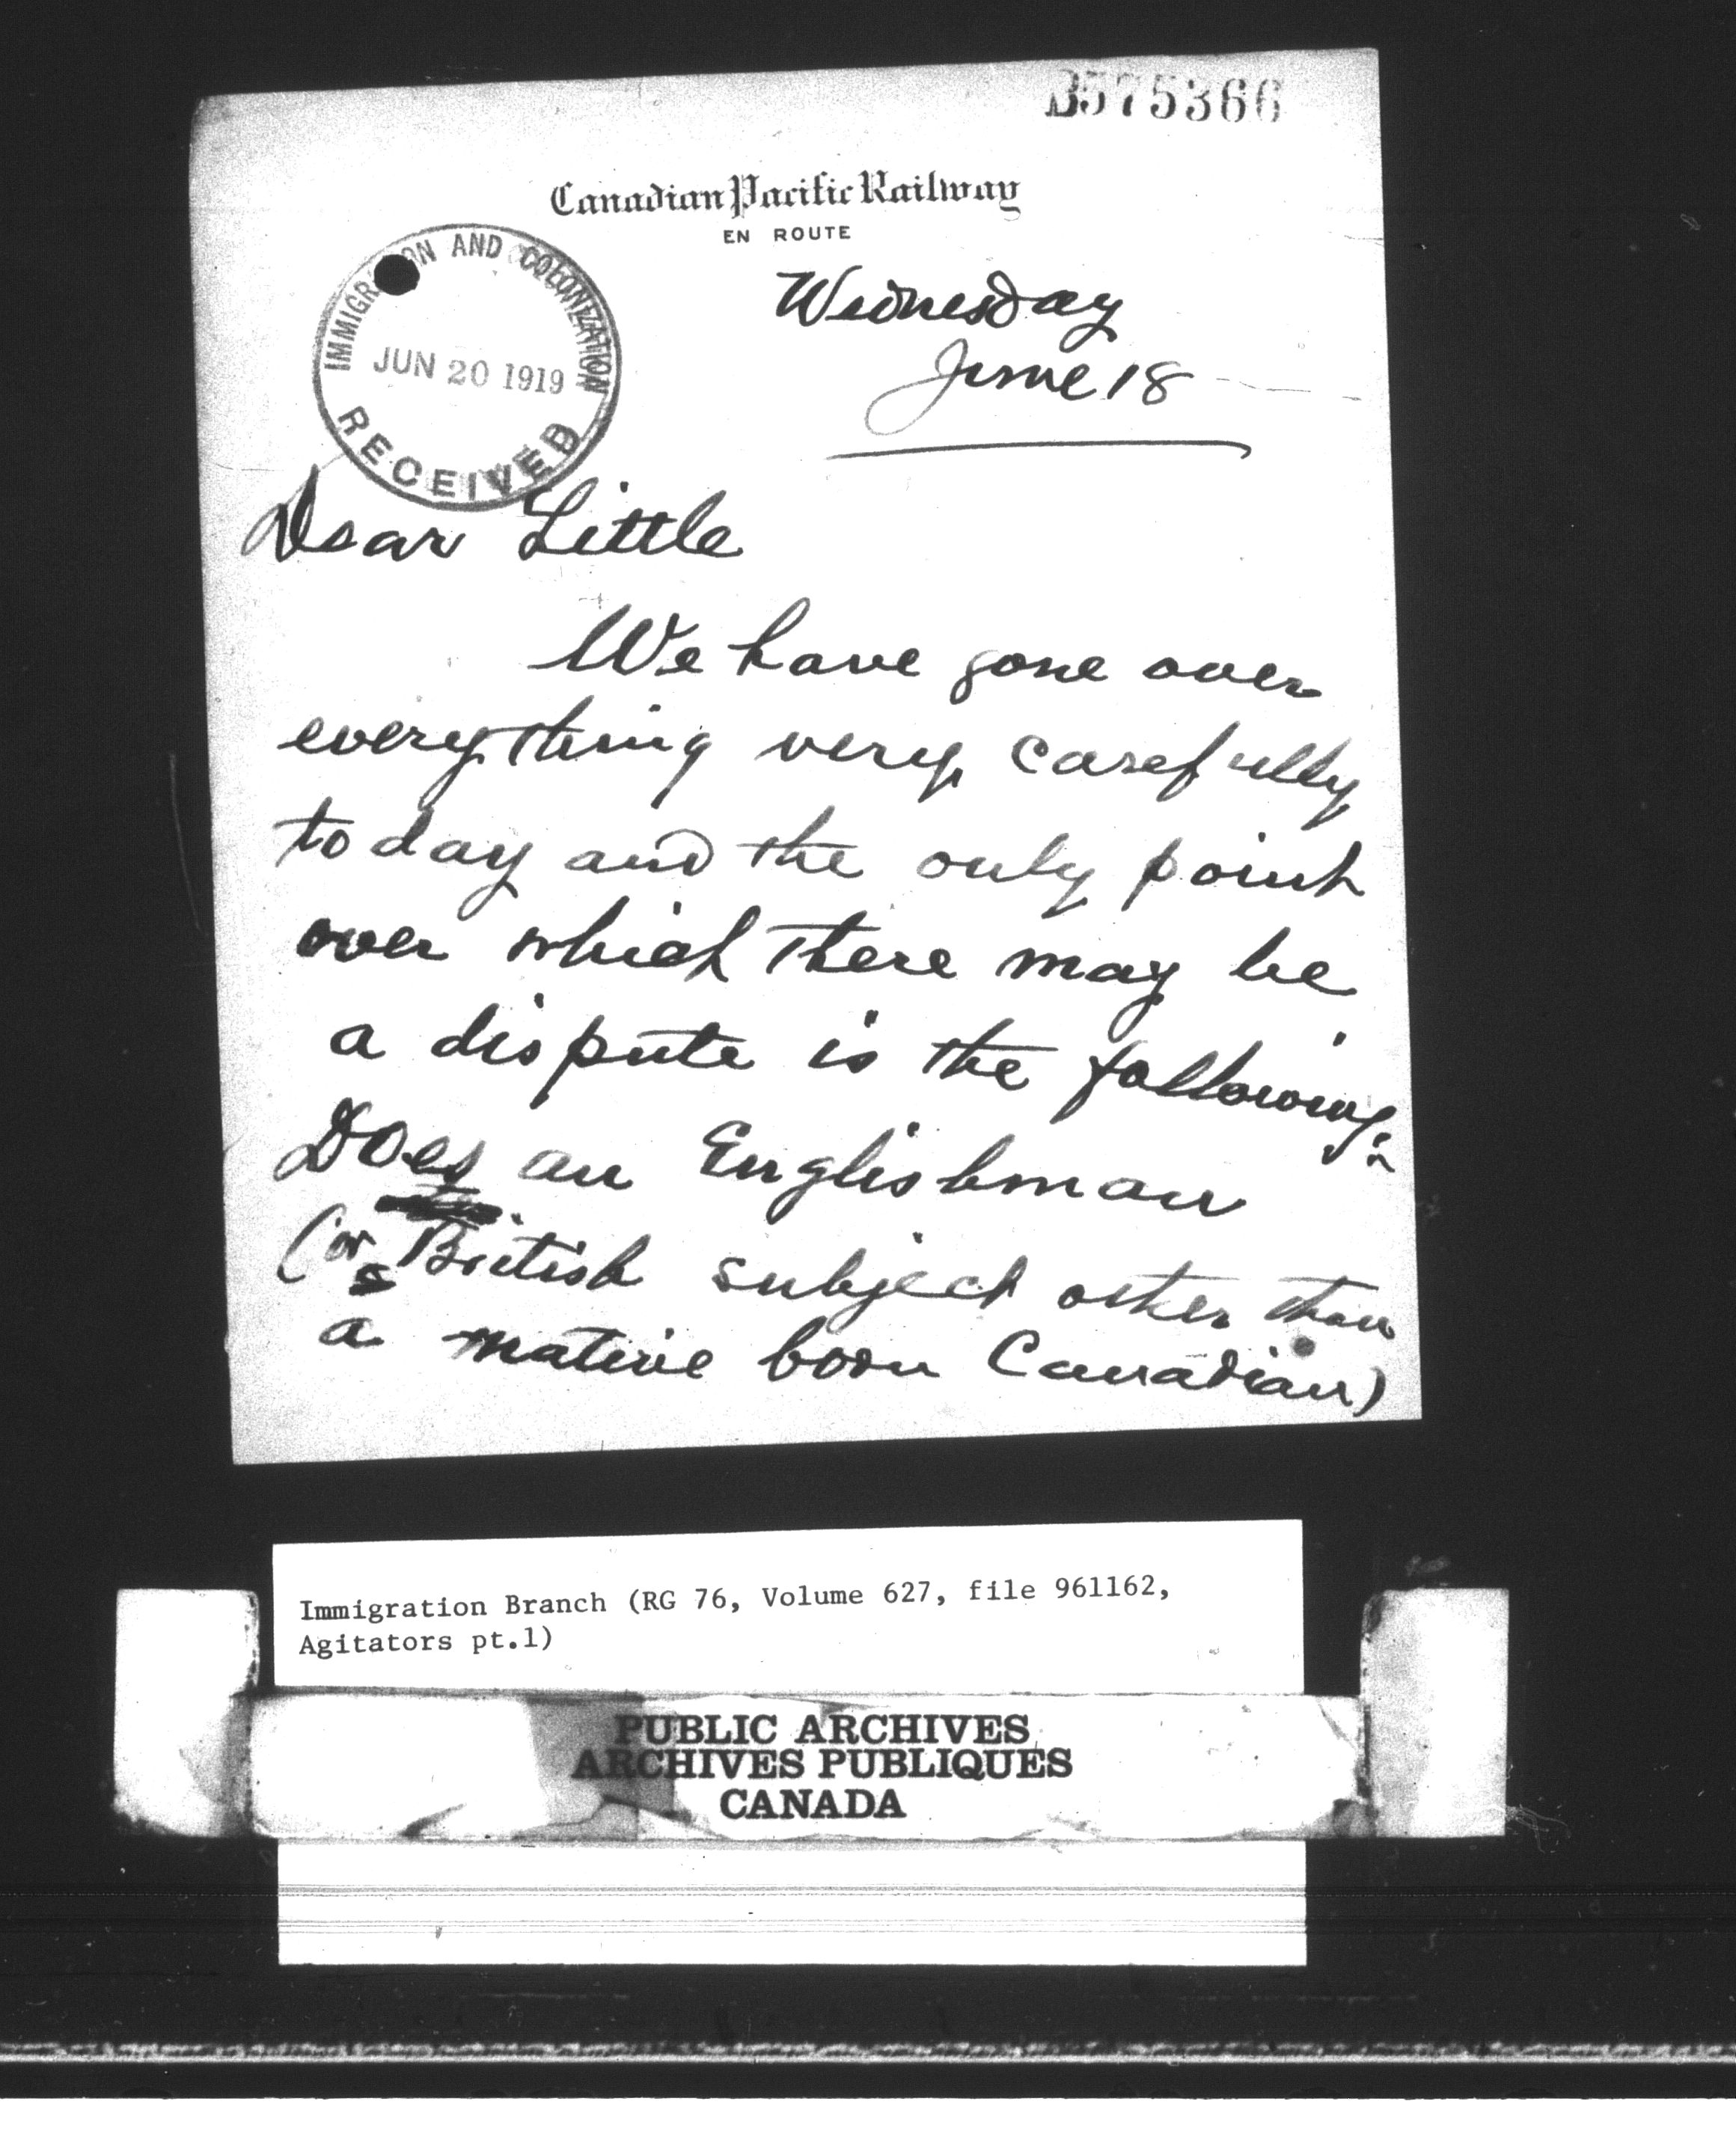 B575366
Canadian Pacific Railway
EN ROUTE
IMMIGRATION AND COLONIZATION
JUN 20 1919
RECEIVED
Wednesday
June 18
Dear Little
We have gone over
everything very carefully
to day and the only point
over which there may be
a dispute is the following:
Does an Englishman
(or a British subject other than
a native born Canadian)
Immigration Branch (RG 76, Volume 627, file 961162,
Agitators pt.1)
PUBLIC ARCHIVES
ARCHIVES PUBLIQUES
CANADA